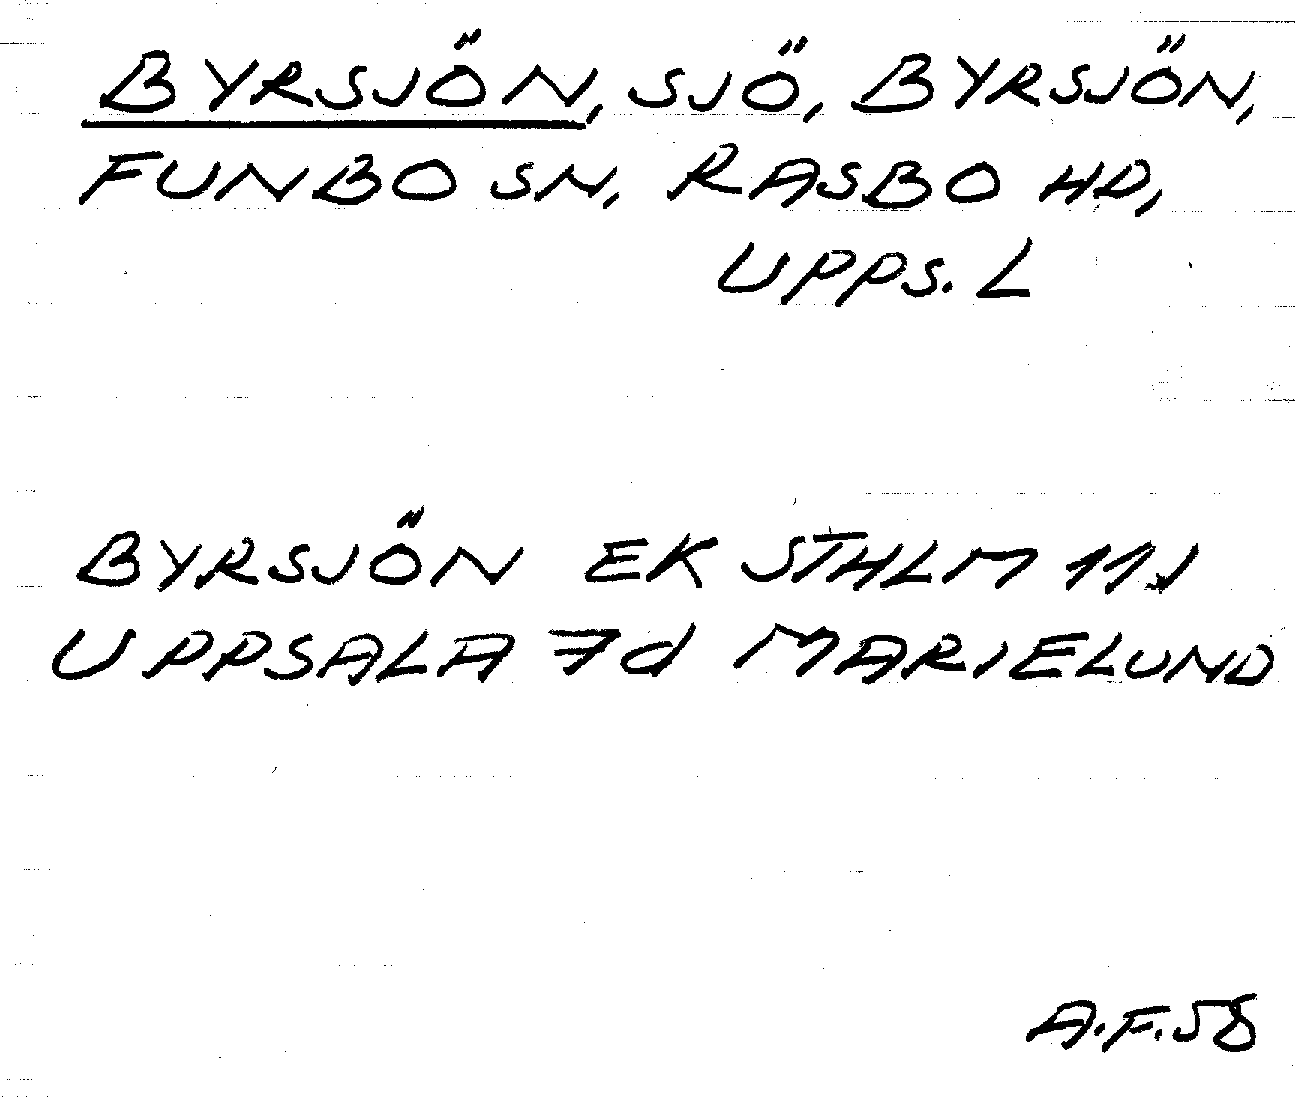 BYRSJÖN, SJÖ, BYRSJÖN,
FUNBO SN, RASBO HD,
UPPS. L
BYRSJÖN EK STHLM 11J
UPPSALA 7d MARIELUND
A.F.58